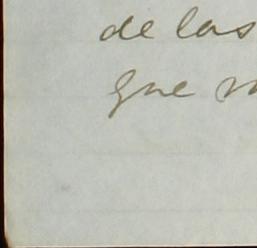 de las
que